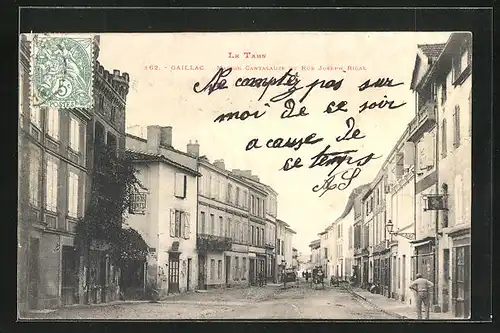 Le Tarn
162. - GAILLAC. Maison Cantaloube et Rue Joseph Rigal
Ne comptez pas sur
moi de ce soir
a cause de
ce temps
5